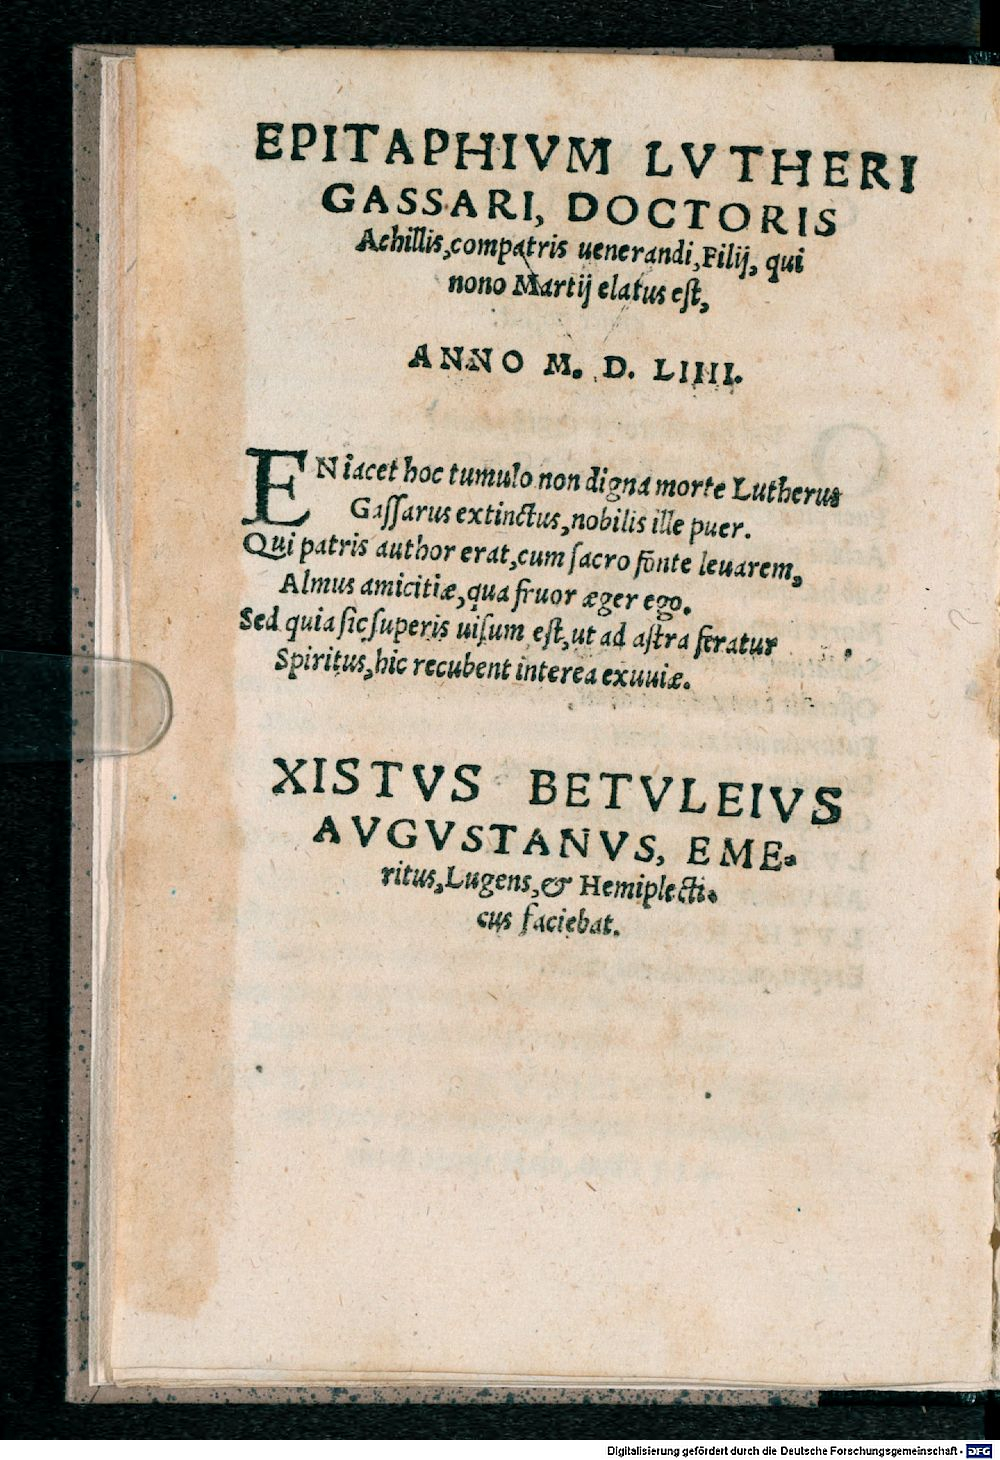 EPITAPHIVM LVTHERI
GASSARI, DOCTORIS
Achillis, compatris uenerandi, Filij, qui
nono Martij elatus eſt,
ANNO M. D. LIIII.
EN iacet hoc tumulo non digna morte Lutherus
Gaſſarus extinctus, nobilis ille puer.
Qui patris author erat, cum ſacro fonte leuarem,
Almus amicitiæ, qua fruor æger ego.
Sed quia ſic ſuperis uiſum eſt, ut ad aſtra feratur
Spiritus, hic recubent interea exuuiæ.
XISTVS BETVLEIVS
AVGVSTANVS, EME-
ritus, Lugens, & Hemiplecti-
cus faciebat.
Digitalisierung gefördert durch die Deutsche Forschungsgemeinschaft - DFG